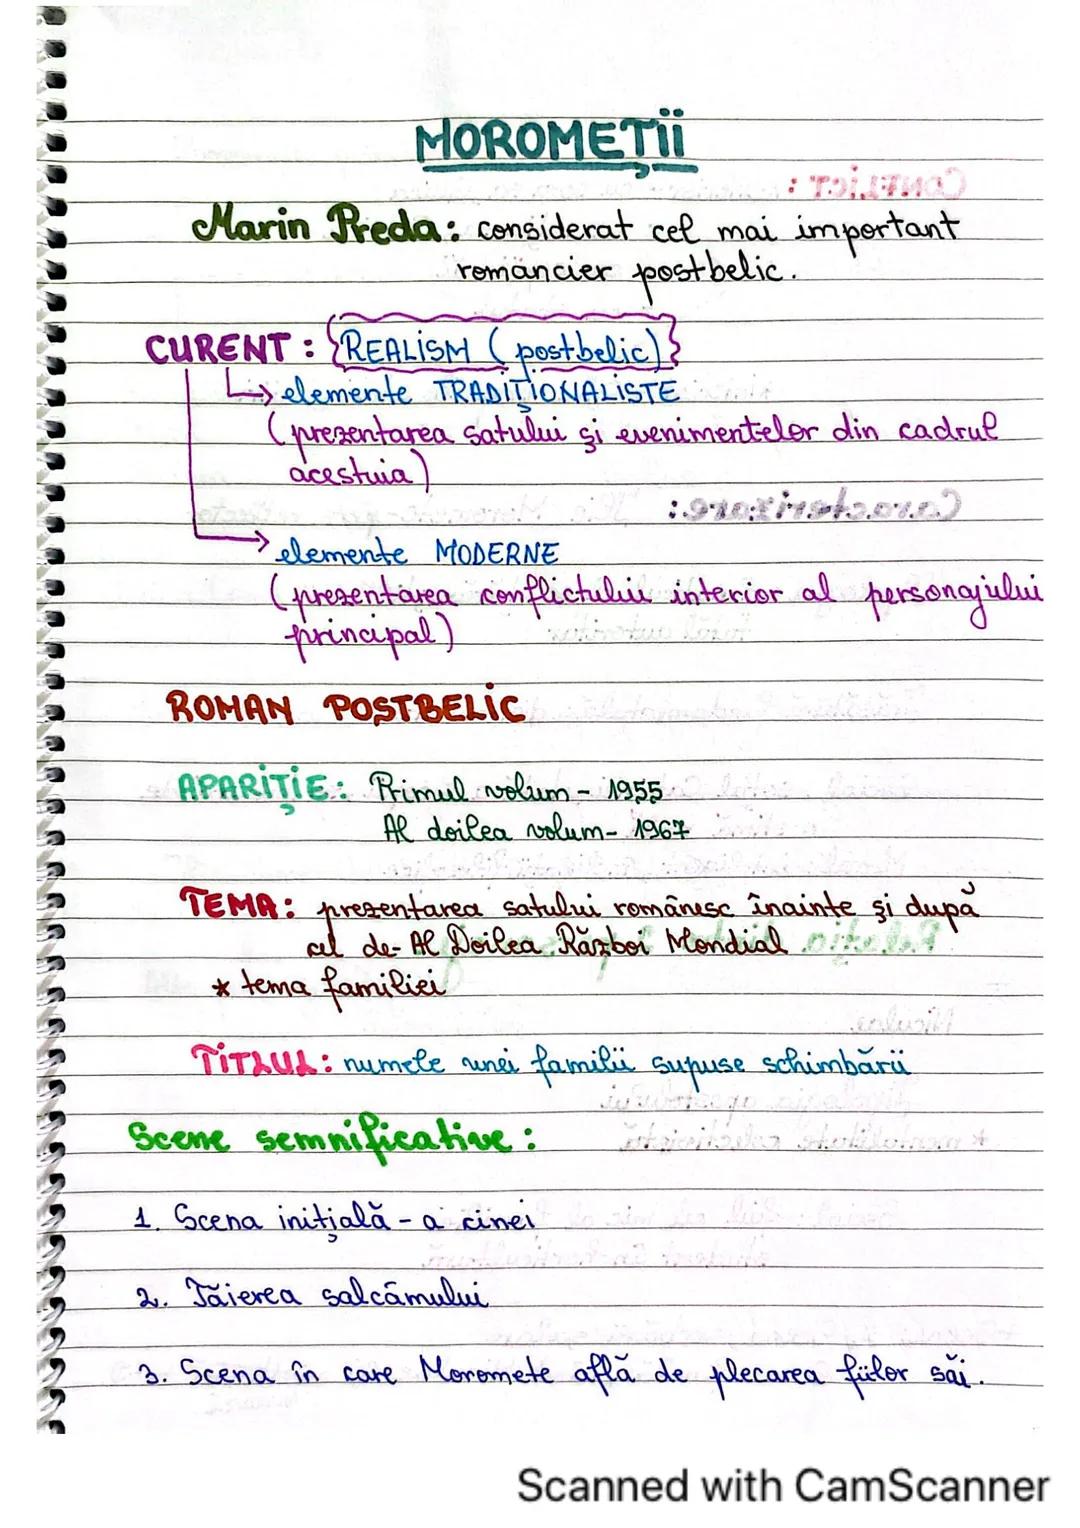 MOROMEȚII
Marin Preda: considerat cel mai important
romancier postbelic.
CURENT: REALISM (postbelic)
elemente TRADIȚIONALISTE
(prezentarea satului și evenimentelor din cadrul
acestuia)
elemente MODERNE
(prezentarea conflictului interior al personajului
principal)
ROMAN POSTBELIC
APARIȚIE: Primul volum - 1955
Al doilea volum - 1967
TEMA: prezentarea satului românesc înainte și după
cel de-Al Doilea Război Mondial
* tema familiei
TITLUL: numele unei familii supuse schimbării
Scene semnificative:
1. Scena inițială - a cinei
2. Tăierea salcâmului
3. Scena în care Moromete află de plecarea fiilor săi.
Scanned with CamScanner